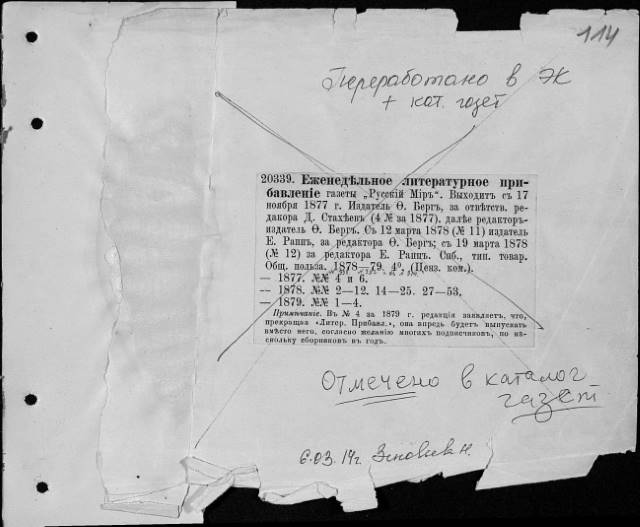 114
Переработано в ЭК
+ кат. газет
20339. Еженедѣльное литературное при-
бавленіе газеты „Русскій Міръ“. Выходитъ съ 17
ноября 1877 г. Издатель Ѳ. Бергъ, за отвѣтств. ре-
дакора Д. Стахѣевъ (4 № за 1877), далѣе редакторъ-
издатель Ѳ. Бергъ. Съ 12 марта 1878 (№ 11) издатель
Е. Раппъ, за редактора Ѳ. Бергъ; съ 19 марта 1878
(№ 12) за редактора Е. Раппъ. Спб., тип. товар.
Общ. польза. 1878—79. 4°. (Ценз. ком.).
— 1877. №№ 4 и 6.
— 1878. №№ 2—12. 14—25. 27—53.
— 1879. №№ 1—4.
Примѣчаніе. Въ № 4 за 1879 г. редакція заявляетъ, что,
прекращая «Литер. Прибавл.», она впредь будетъ выпускать
вмѣсто него, согласно желанію многихъ подписчиковъ, по нѣ-
скольку сборниковъ въ годъ.
Отмечено в каталог
газет
6.03.14г.